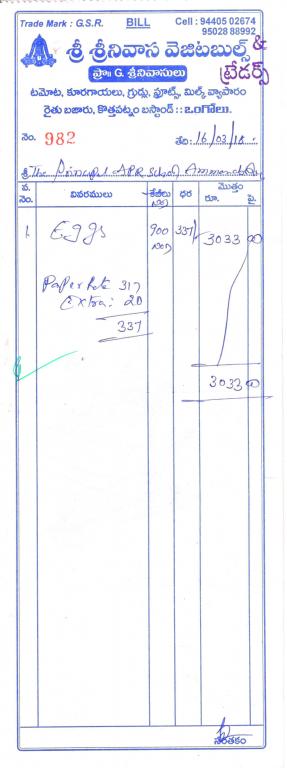 Trade Mark : G.S.R. BILL Cell : 94405 02674
95028 88992
శ్రీ శ్రీనివాస వెజిటబుల్స్ &
ట్రేడర్స్
ప్రొ॥ G. శ్రీనివాసులు
టమోట, కూరగాయలు, గ్రుడ్లు, ఫ్రూట్స్, మిల్క్ వ్యాపారం
రైతు బజారు, కొత్తపట్నం బస్టాండ్ :: ఒంగోలు.
నెం. 982 తేది: 16/03/18
శ్రీ The Principal APR School
వ. నెం. వివరములు కేజీలు ధర మొత్తం రూ. పై.
1. Eggs 900 337 3033 00
Paper Rate 317
Extra: 20
337
3033 00
సంతకం